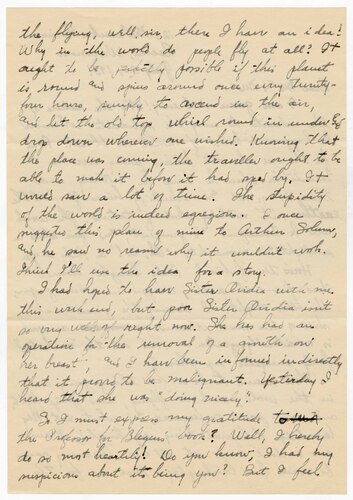 the flying, well, sir, there I have an idea!
Why in the world do people fly at all? It
ought to be perfectly possible if this planet
is round and spins around once every twenty-
four hours, simply to ascend in the air,
and let the old top which round in under &
drop down wherever one wished. Knowing that
the place was coming, the traveller ought to be
able to make it before it had sped by. It
would save a lot of time. The stupidity
of the world is indeed egregious. I once
suggested this plan of mine to Arthur
and he saw no reason why it wouldn't work.
I think I'll use the idea for a story.
I had hoped to have Sister Avidia with me
this week end, but poor Sister Avidia isn't
so very well right now. She has had an
operation for "the removal of a growth on
her breast", and I have been informed indirectly
that it proved to be malignant. Yesterday I
heard that she was "doing nicely".
So I must express my gratitude to
the Professor for book? Well, I hereby
do so most heartily! Do you know, I had my
suspicions about its being you? But I feel